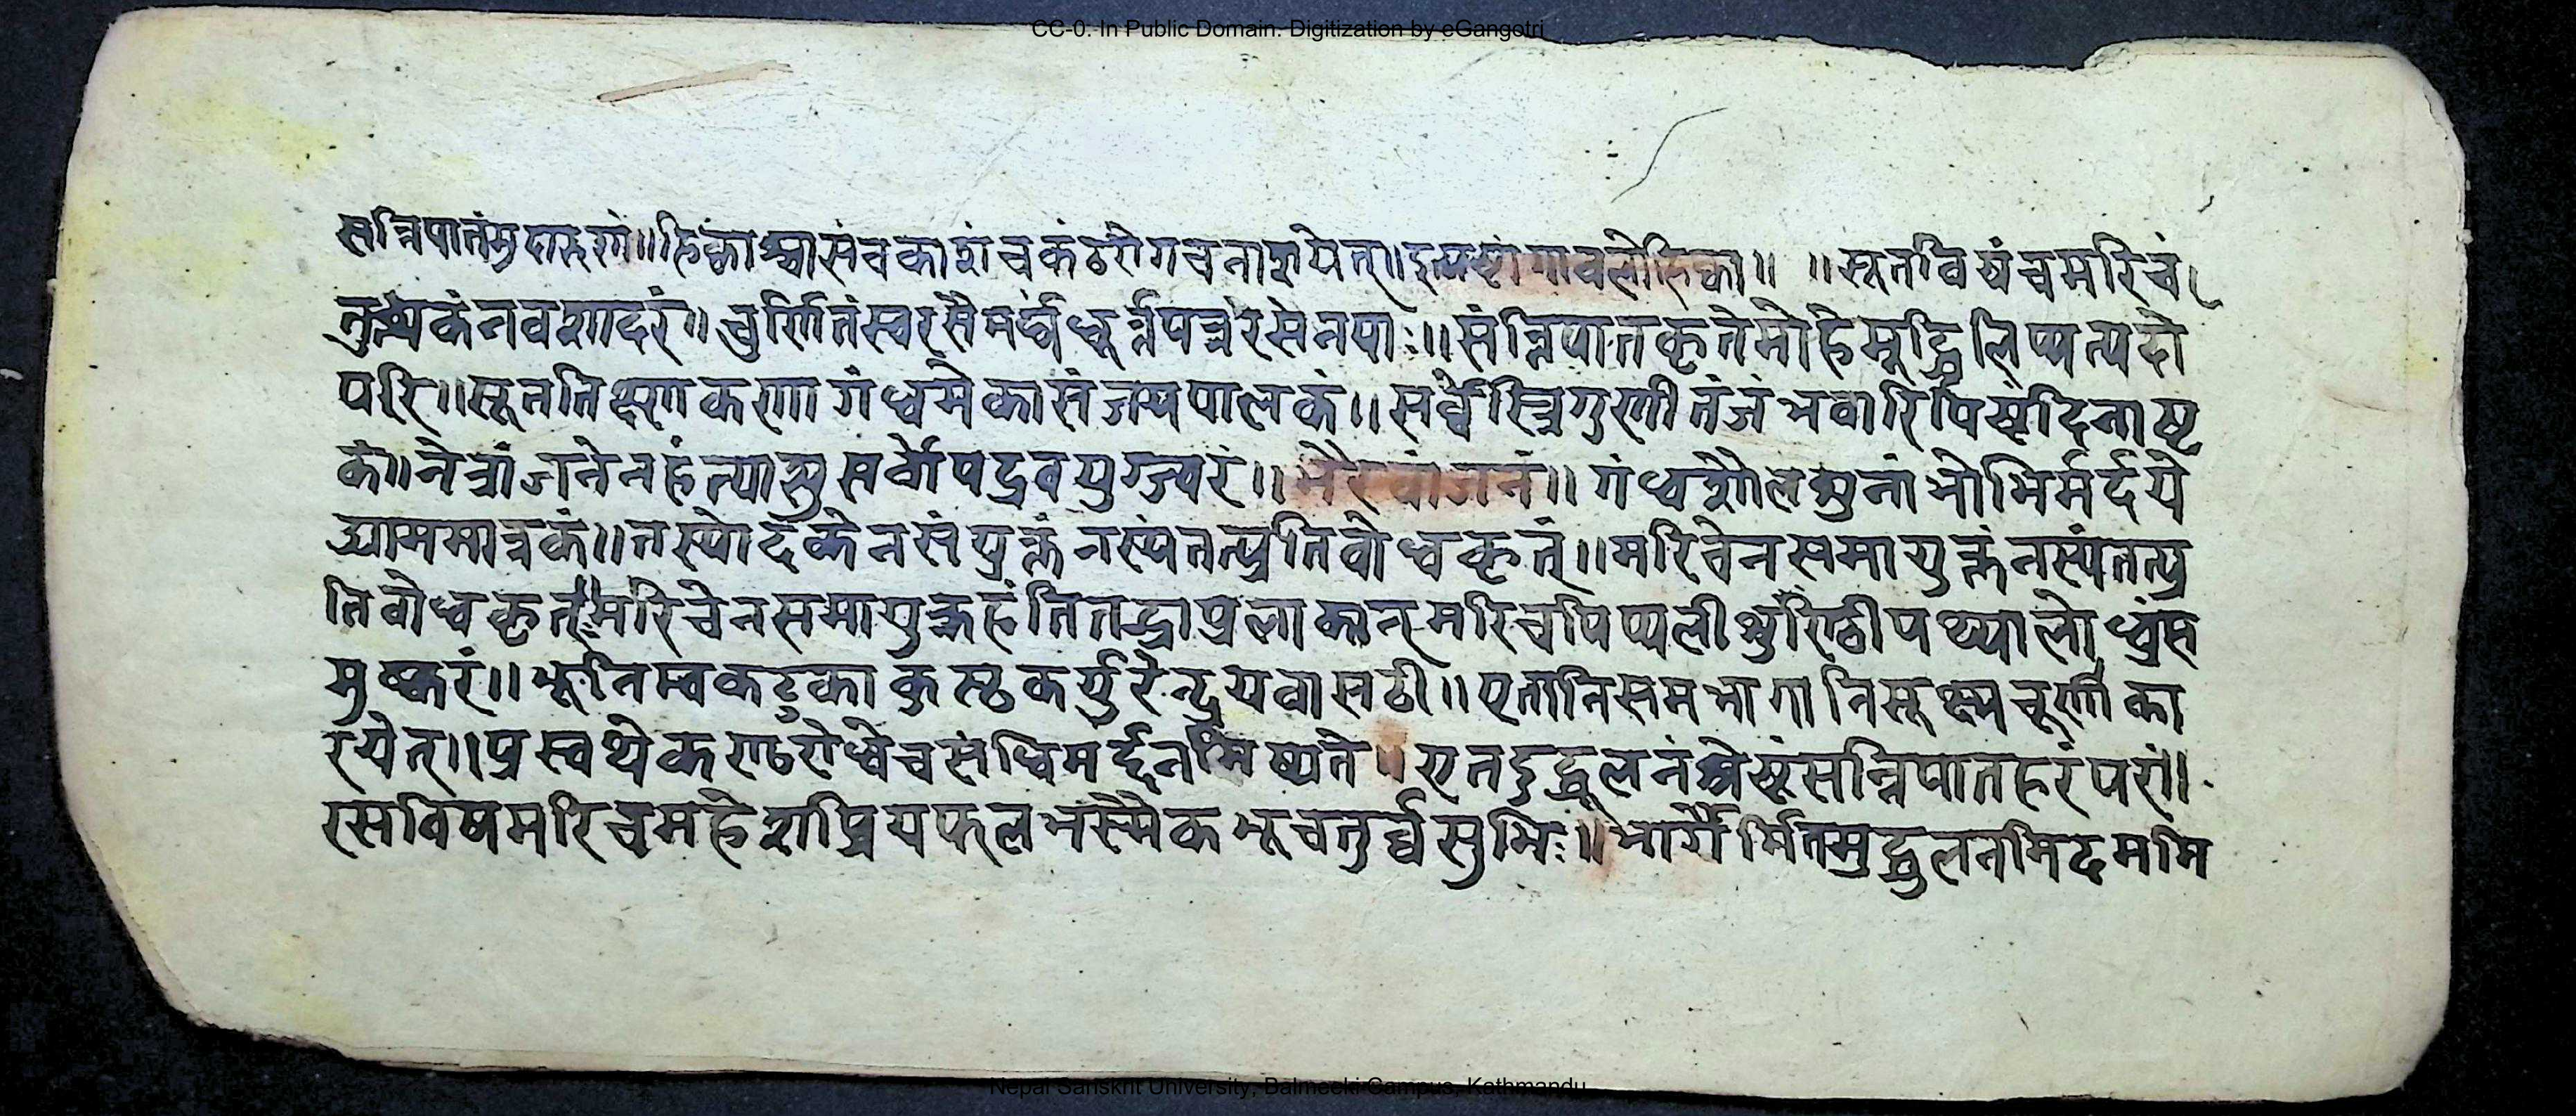 CC-0. In Public Domain. Digitization by eGangotri
सन्निपातंसुदारुणं॥हिक्कांश्वासंचकाशंचकंठरोगचनाशयेत्॥इत्यष्टांगावलेहिका॥ ॥सूतविषंचमरिचं
तुत्थकंनवशादरं॥चुर्णितंस्वरसैमर्घंधूर्त्तपत्ररसेनपाः॥संन्निपातकृतेमोहेमूर्द्ध्निलिप्पत्पदो
परि॥सूततिक्ष्णकणागंधमेकासंजयपालकं॥सर्वेस्त्रिगुणीतंजंभवारिपिष्टंदिनाष्ट
कं॥नेत्रांजनेनहंत्यासुसर्वोपद्रवयुग्ज्वरं॥भैरवांजनं॥गंधशैलसुनांभोभिर्मर्दये
द्याममात्रकं॥तस्योदकेनसंयुक्तंनस्यंतत्प्रतिवोधकृत्॥मरिचेनसमायुक्तंनस्यंतत्प्र
तिवोधकृत्ः॥मरिचेनसमायुक्तहंतितन्द्राप्रलाकान्मरिचपिप्पलीशुण्ठिपथ्यालोध्रंस
मुष्करं॥भूनिम्वकटुकाकुस्ठकर्युरेन्द्रयवासठी॥एतानिसमभागानिसूक्ष्मचूर्णाका
रयेत्॥प्रस्वथेकण्ठरोधेचसंधिमर्द्दनमिष्यते॥एतदुद्धूलनंश्रेष्टंसन्निपातहरंपरां॥
रसविषमरिचमहेशप्रियफलभस्मैकभूचतुर्व्वसुभिः॥भागैर्मितमुद्धुलनमिदममि
Nepal Sanskrit University, Balmeeki Campus, Kathmandu